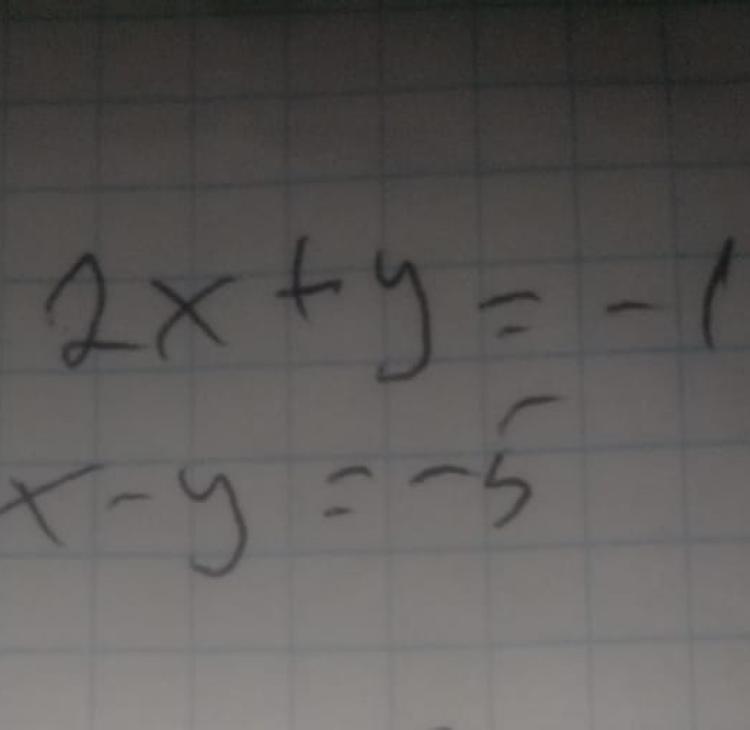 2x + y = -1
x - y = -5